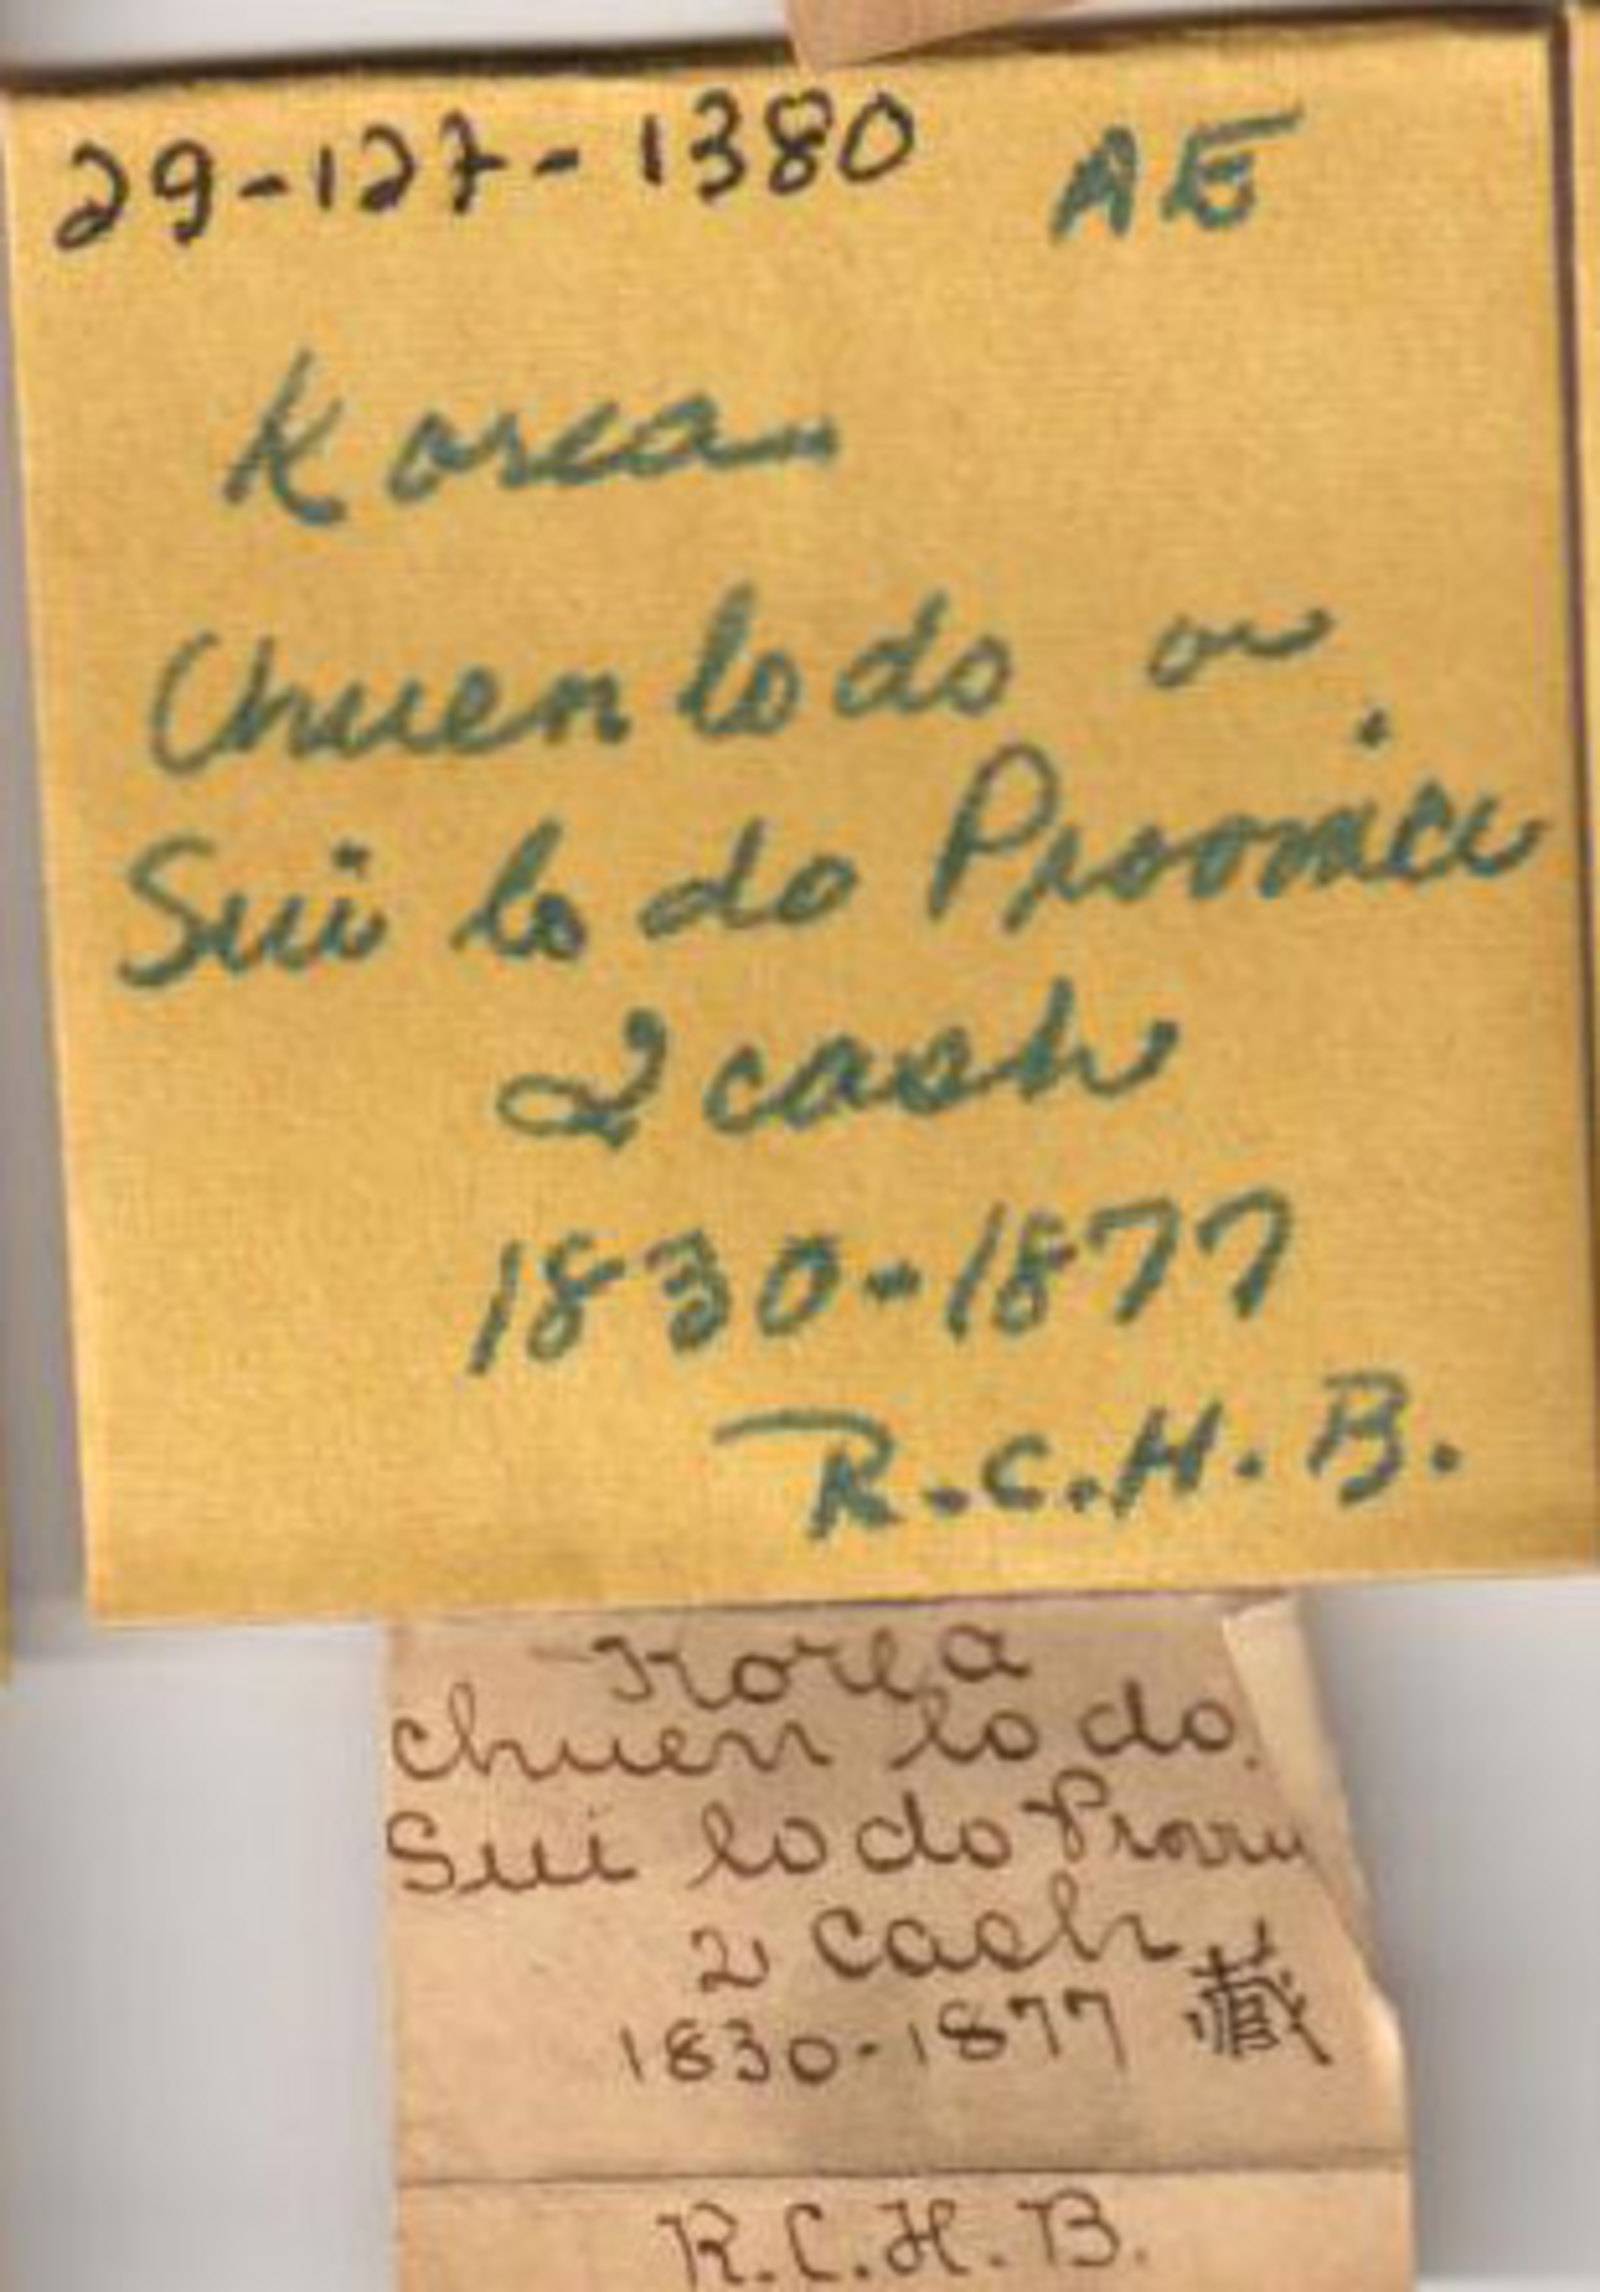 29-127-1380 AE
Korea
Chuen lo do or
Sui lo do Province
2 cash
1830-1877
R.C.H.B.
Korea
Chuen lo do.
Sui lo do
2 Cash
1830-1877 藏
R.C.H.B.